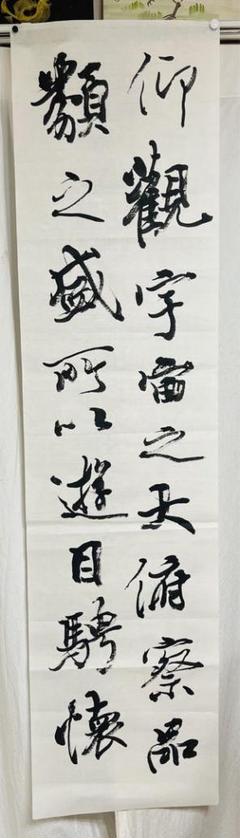 仰觀宇宙之天俯察品
類之盛所以遊目騁懷